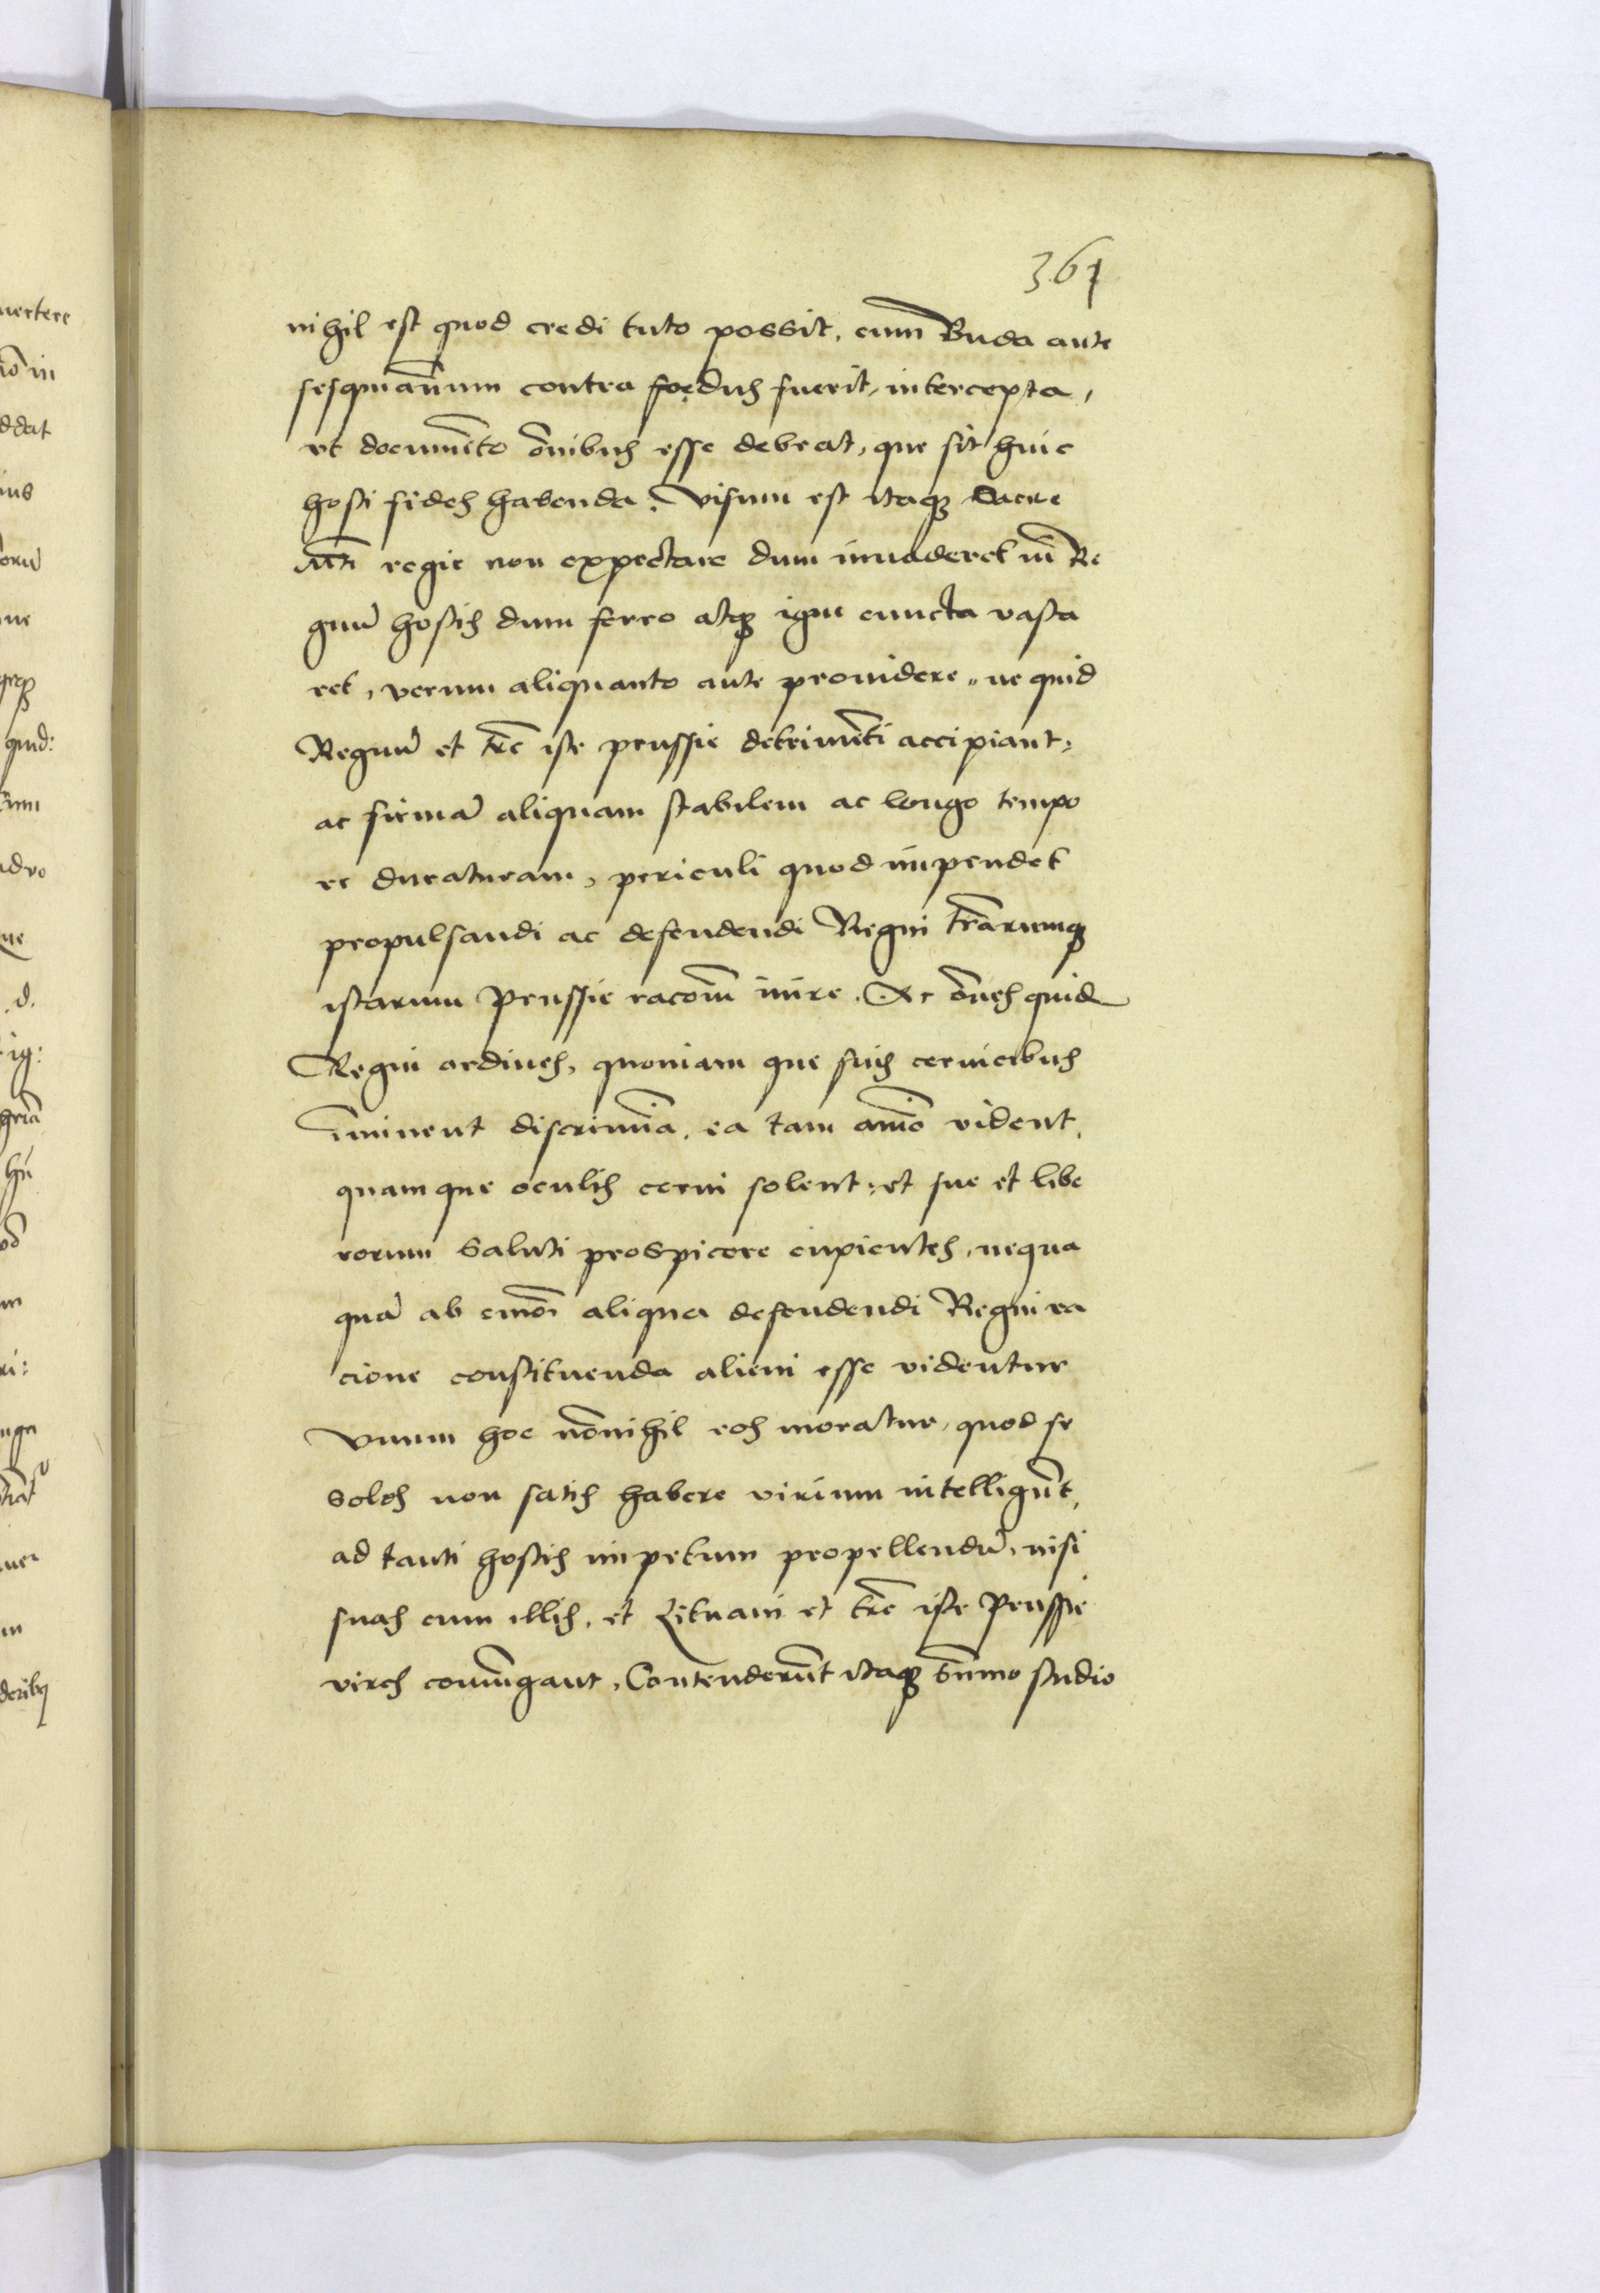 361
nihil est quod credi tuto possit, cum Buda ante
sesquiañum contra foedus fuerit, intercepta,
ut documẽto õnibus esse debeat, que sit huic
hosti fides habenda. Visum est itaqꝫ Sacre
Mti regie non expectare dum inuaderet in Re
gnũ hostis dum ferro atqꝫ igni cuncta vasta
ret, verum aliquanto ante prouidere, ne quid
Regnũ et tr̃e iste prussie detrimẽti accipiant,
ac firmã aliquam stabilem ac longo tempo
re duraturam, periculi quod impendet
propulsandi ac defendendi Regni tr̃arumqꝫ
istarum Prussie racõm inire. Ac õnes quid
Regni ordines, quoniam que suis ceruicibus
ĩminent discrimĩa, ea tam aĩmo vident,
quam que oculis cerni solent, et sue et libe
rorum saluti prospicere cupientes, nequa
quã ab em̃oi aliqua defendendi Regni ra
cione constituenda alieni esse videntur
Vnum hoc nõnihil eos moratur, quod se
solos non satis habere virium intelligũt,
ad tanti hostis impetum propellendũ, nisi
suas cum illis, et Lituani et tr̃e iste Prussie
vires coniũgant, Contenderũt itaqꝫ sũmo studio